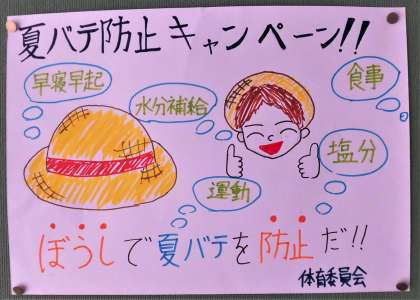 夏バテ防止キャンペーン!!
早寝早起
水分補給
食事
塩分
運動
ぼうしで夏バテを防止だ!!
体育委員会